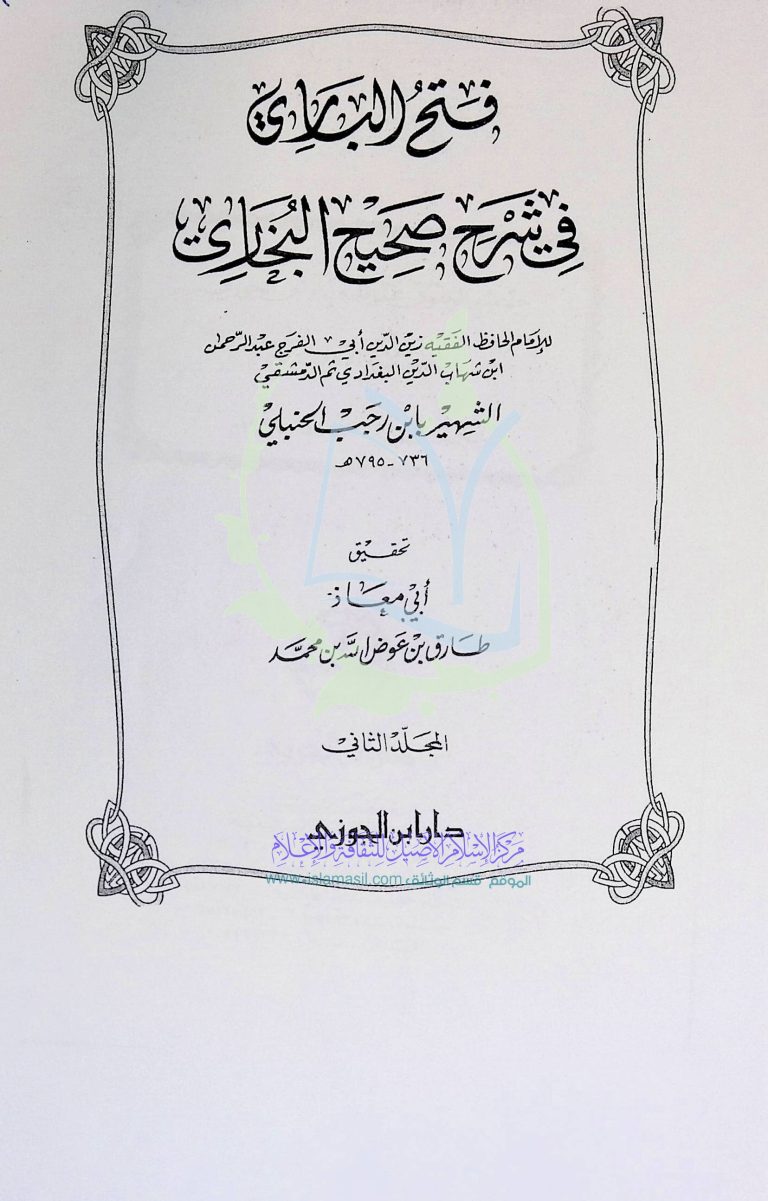 فَتْحُ البَارِي
فِي شَرْحِ صَحِيحِ البُخَارِي
للإمام الحافظ الفقيه زين الدين أبي الفرج عبد الرحمن
ابن شهاب الدين البغدادي ثم الدمشقي
الشهير بابن رجب الحنبلي
٧٣٦ - ٧٩٥ هـ
تحقيق
أبي معاذ
طارق بن عوض الله بن محمد
المجلد الثاني
دار ابن الجوزي
مركز الإسلام الأصيل للثقافة والإعلام
الموقع قسم الوثائق www.islamasil.com